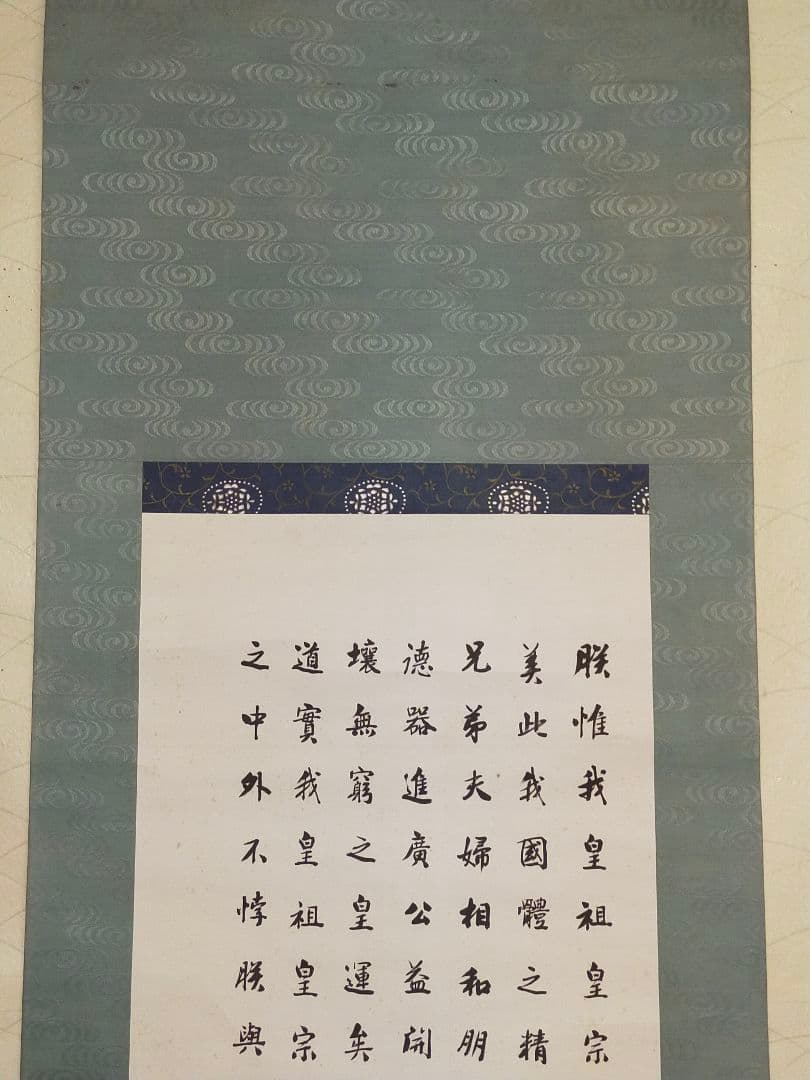 朕惟我皇祖皇宗
美此我國體之精
兄弟夫婦相和朋
德器進廣公益開
壤無窮之皇運矣
道實我皇祖皇宗
之中外不悖朕與